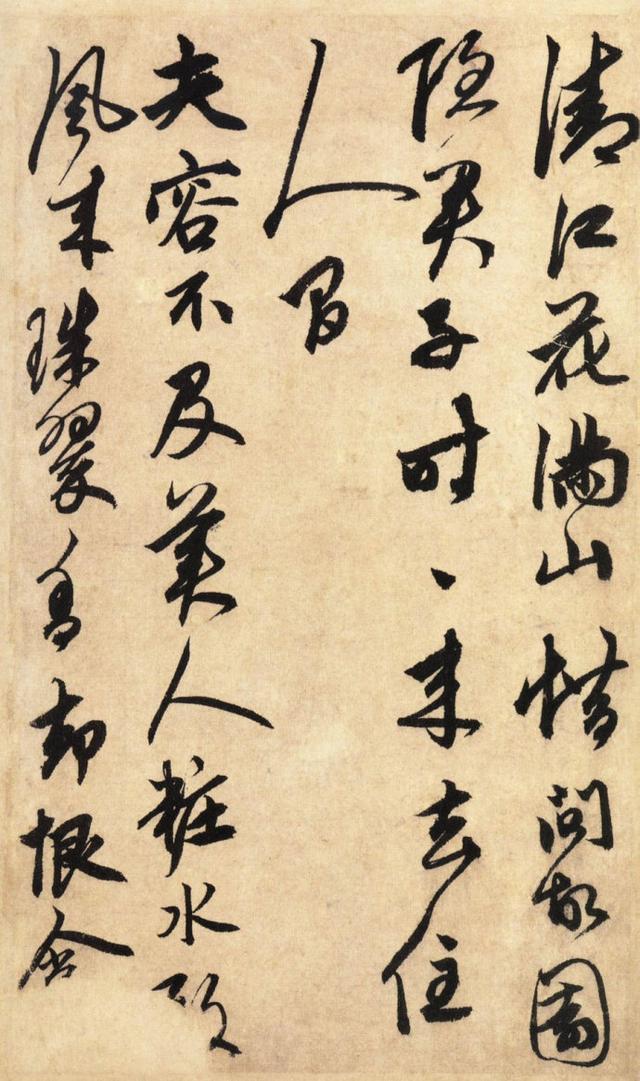 清江花滿山惜問故園
隱君子時、来去住
人間
夫容不及美人粧水殿
風来珠翠香却恨含